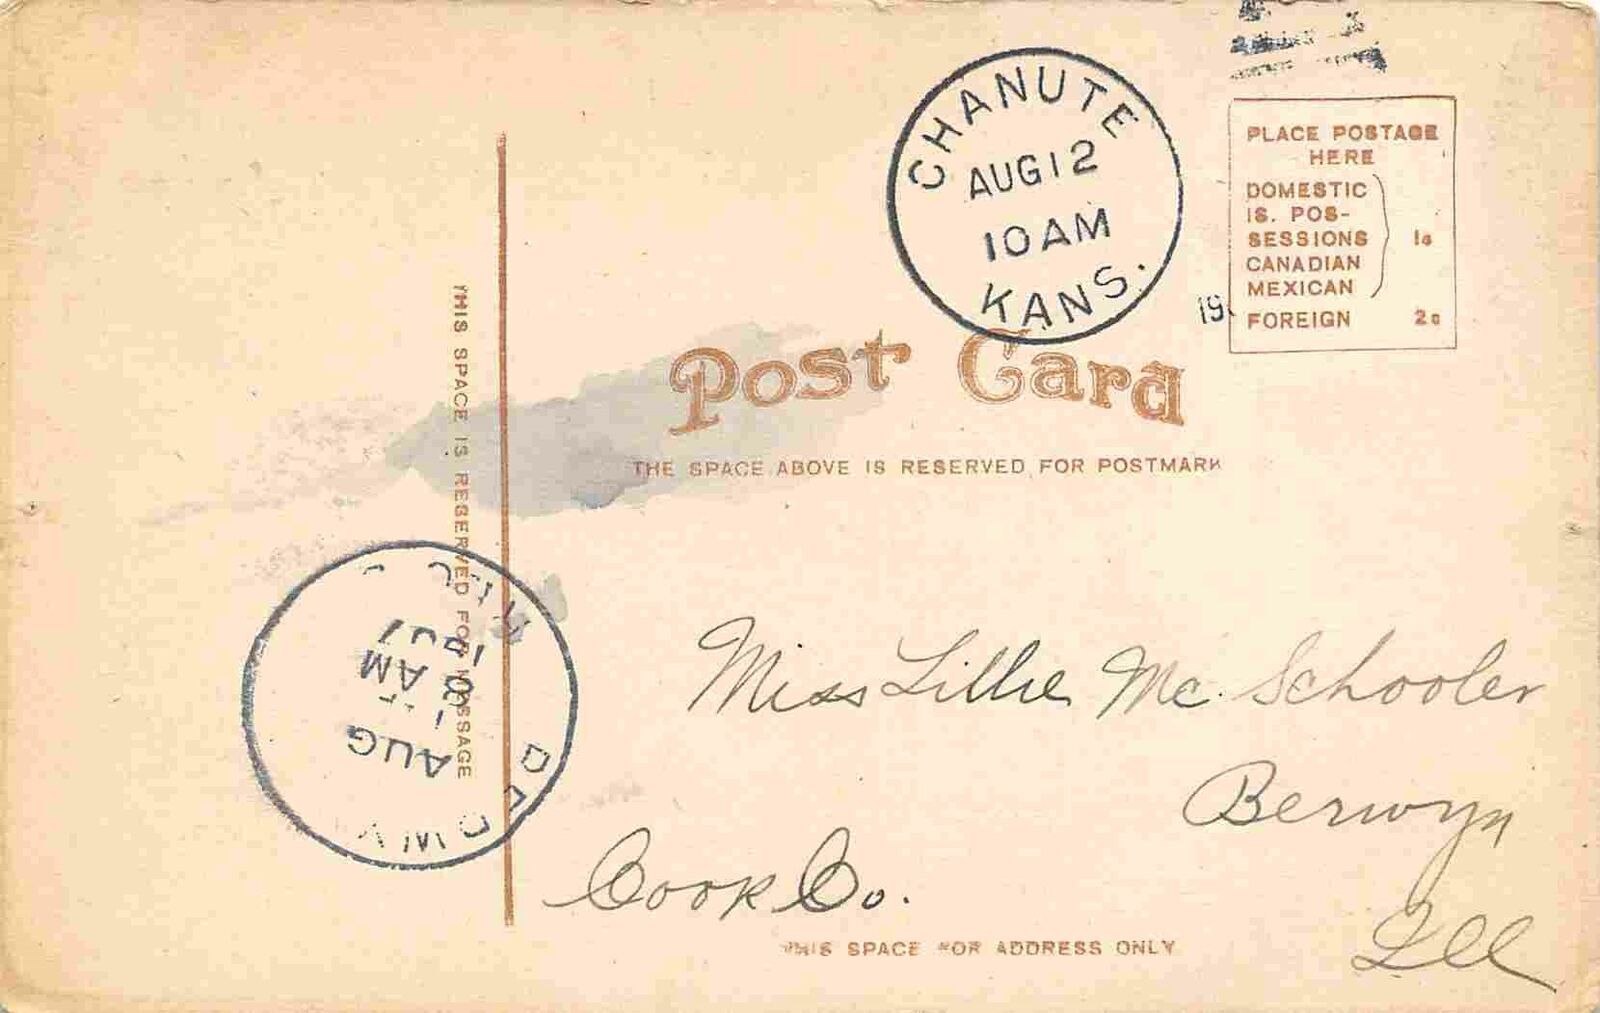 CHANUTE
AUG 12
10 AM
KANS.
PLACE POSTAGE
HERE
DOMESTIC
IS. POS-
SESSIONS
CANADIAN
MEXICAN
1c
FOREIGN 2c
19
Post Card
THE SPACE ABOVE IS RESERVED FOR POSTMARK
THIS SPACE IS RESERVED FOR MESSAGE
AUG
AM
Miss Lillie Mc. Schooler
Berwyn
Cook Co.
Ill
THIS SPACE FOR ADDRESS ONLY